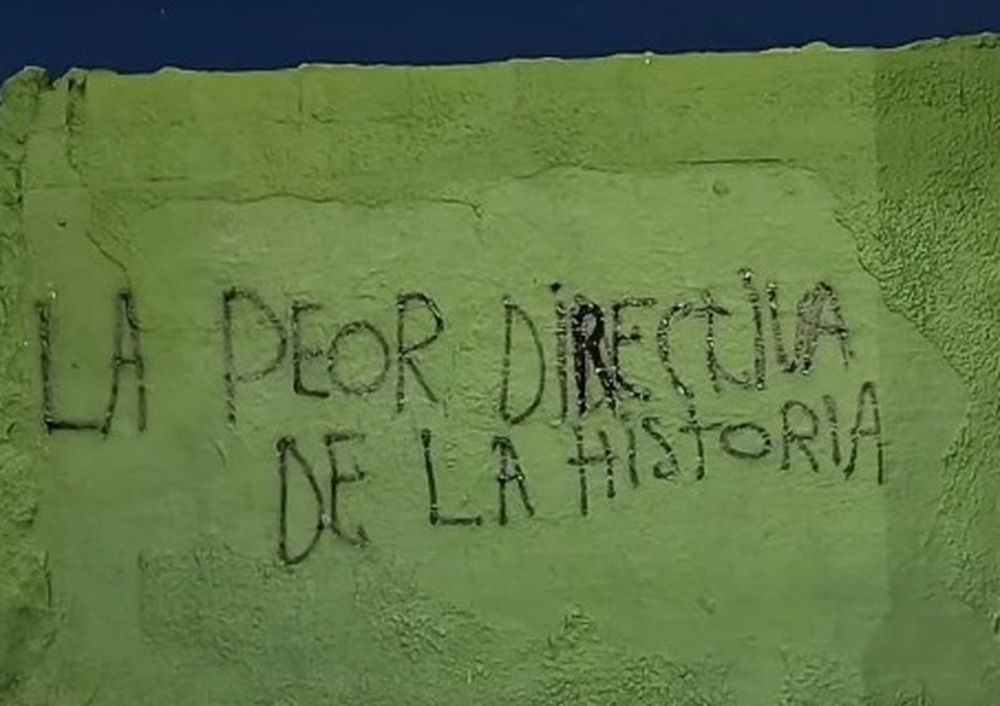 LA PEOR DIRECTIVA
DE LA HISTORIA